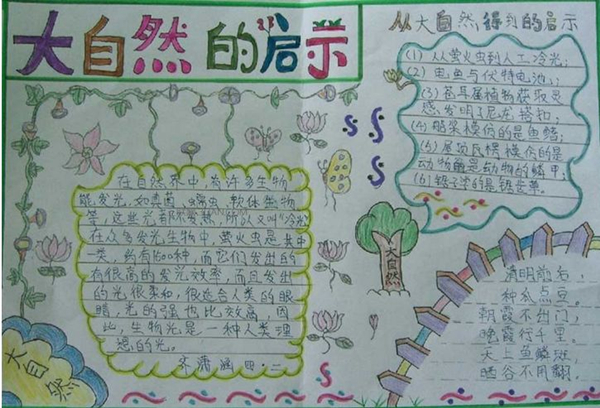 大自然的启示
从大自然得到的启示
(1) 从萤火虫到人工冷光;
(2) 电鱼与伏特电池;
(3) 苍耳属植物获取灵
感发明了尼龙搭扣,
(4) 船桨模仿的是鱼鳍;
(5) 屋顶瓦楞模仿的是
动物的鳞甲;
(6) 锯子学的是
在自然界中,有许多生物
能发光,如
等,这些光都不发热,所以又叫“冷光”
在众多发光生物中,萤火虫是其中
一类,约有1500种,而它们发出的
有很高的发光效率,而且发出
的光很柔和,很适合人类的眼
睛,光的强也比较高,因
此,生物光是一种人类理
想的光。
四·二
大自然
大自然
清明前后,
种瓜点豆。
朝霞不出门,
晚霞行千里。
天上鱼鳞斑,
晒谷不用翻,